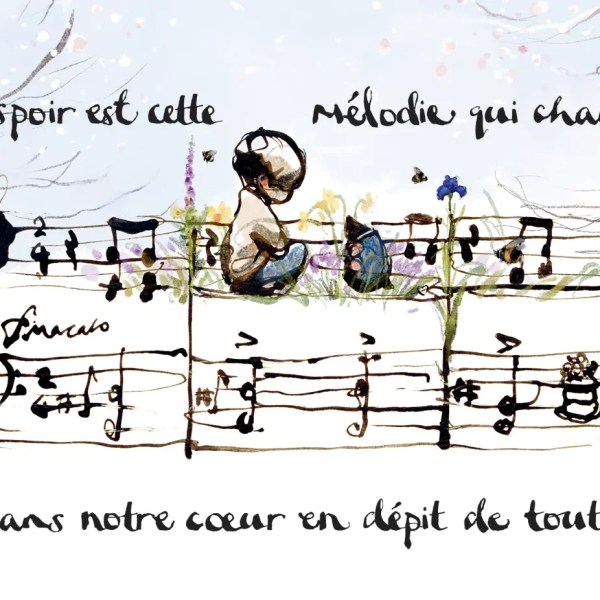 spoir est cette Mélodie qui cha
ans notre cœur en dépit de tout